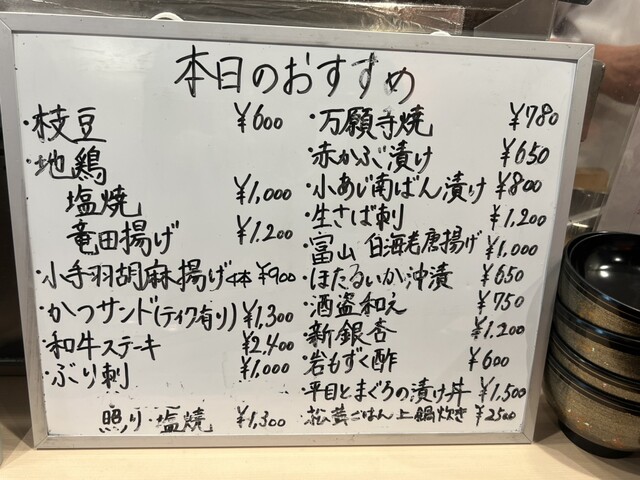 本日のおすすめ
・枝豆 ¥600
・地鶏
塩焼 ¥1,000
竜田揚げ ¥1,200
・小手羽胡麻揚げ4本 ¥900
・かつサンド(テイク有り) ¥1,300
・和牛ステーキ ¥2,400
・ぶり刺 ¥1,000
照り・塩焼 ¥1,300
・万願寺焼 ¥780
赤かぶ漬け ¥650
・小あじ南ばん漬け ¥800
・生さば刺 ¥1,200
・富山 白海老唐揚げ ¥1,000
・ほたるいか沖漬 ¥650
・酒盗和え ¥750
・新銀杏 ¥1,200
・岩もずく酢 ¥600
・平目とまぐろの漬け丼 ¥1,500
・松茸ごはん土鍋炊き ¥2500